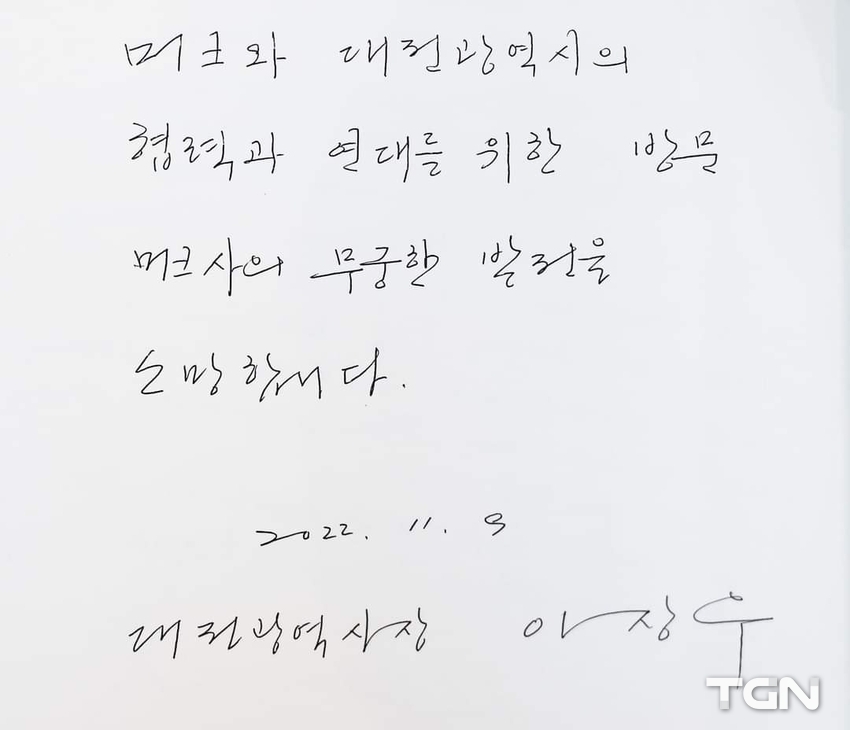 머크와 대전광역시의
협력과 연대를 위한 방문
머크사의 무궁한 발전을
소망합니다.
2022. 11. 9
대전광역시장 이장우
TGN